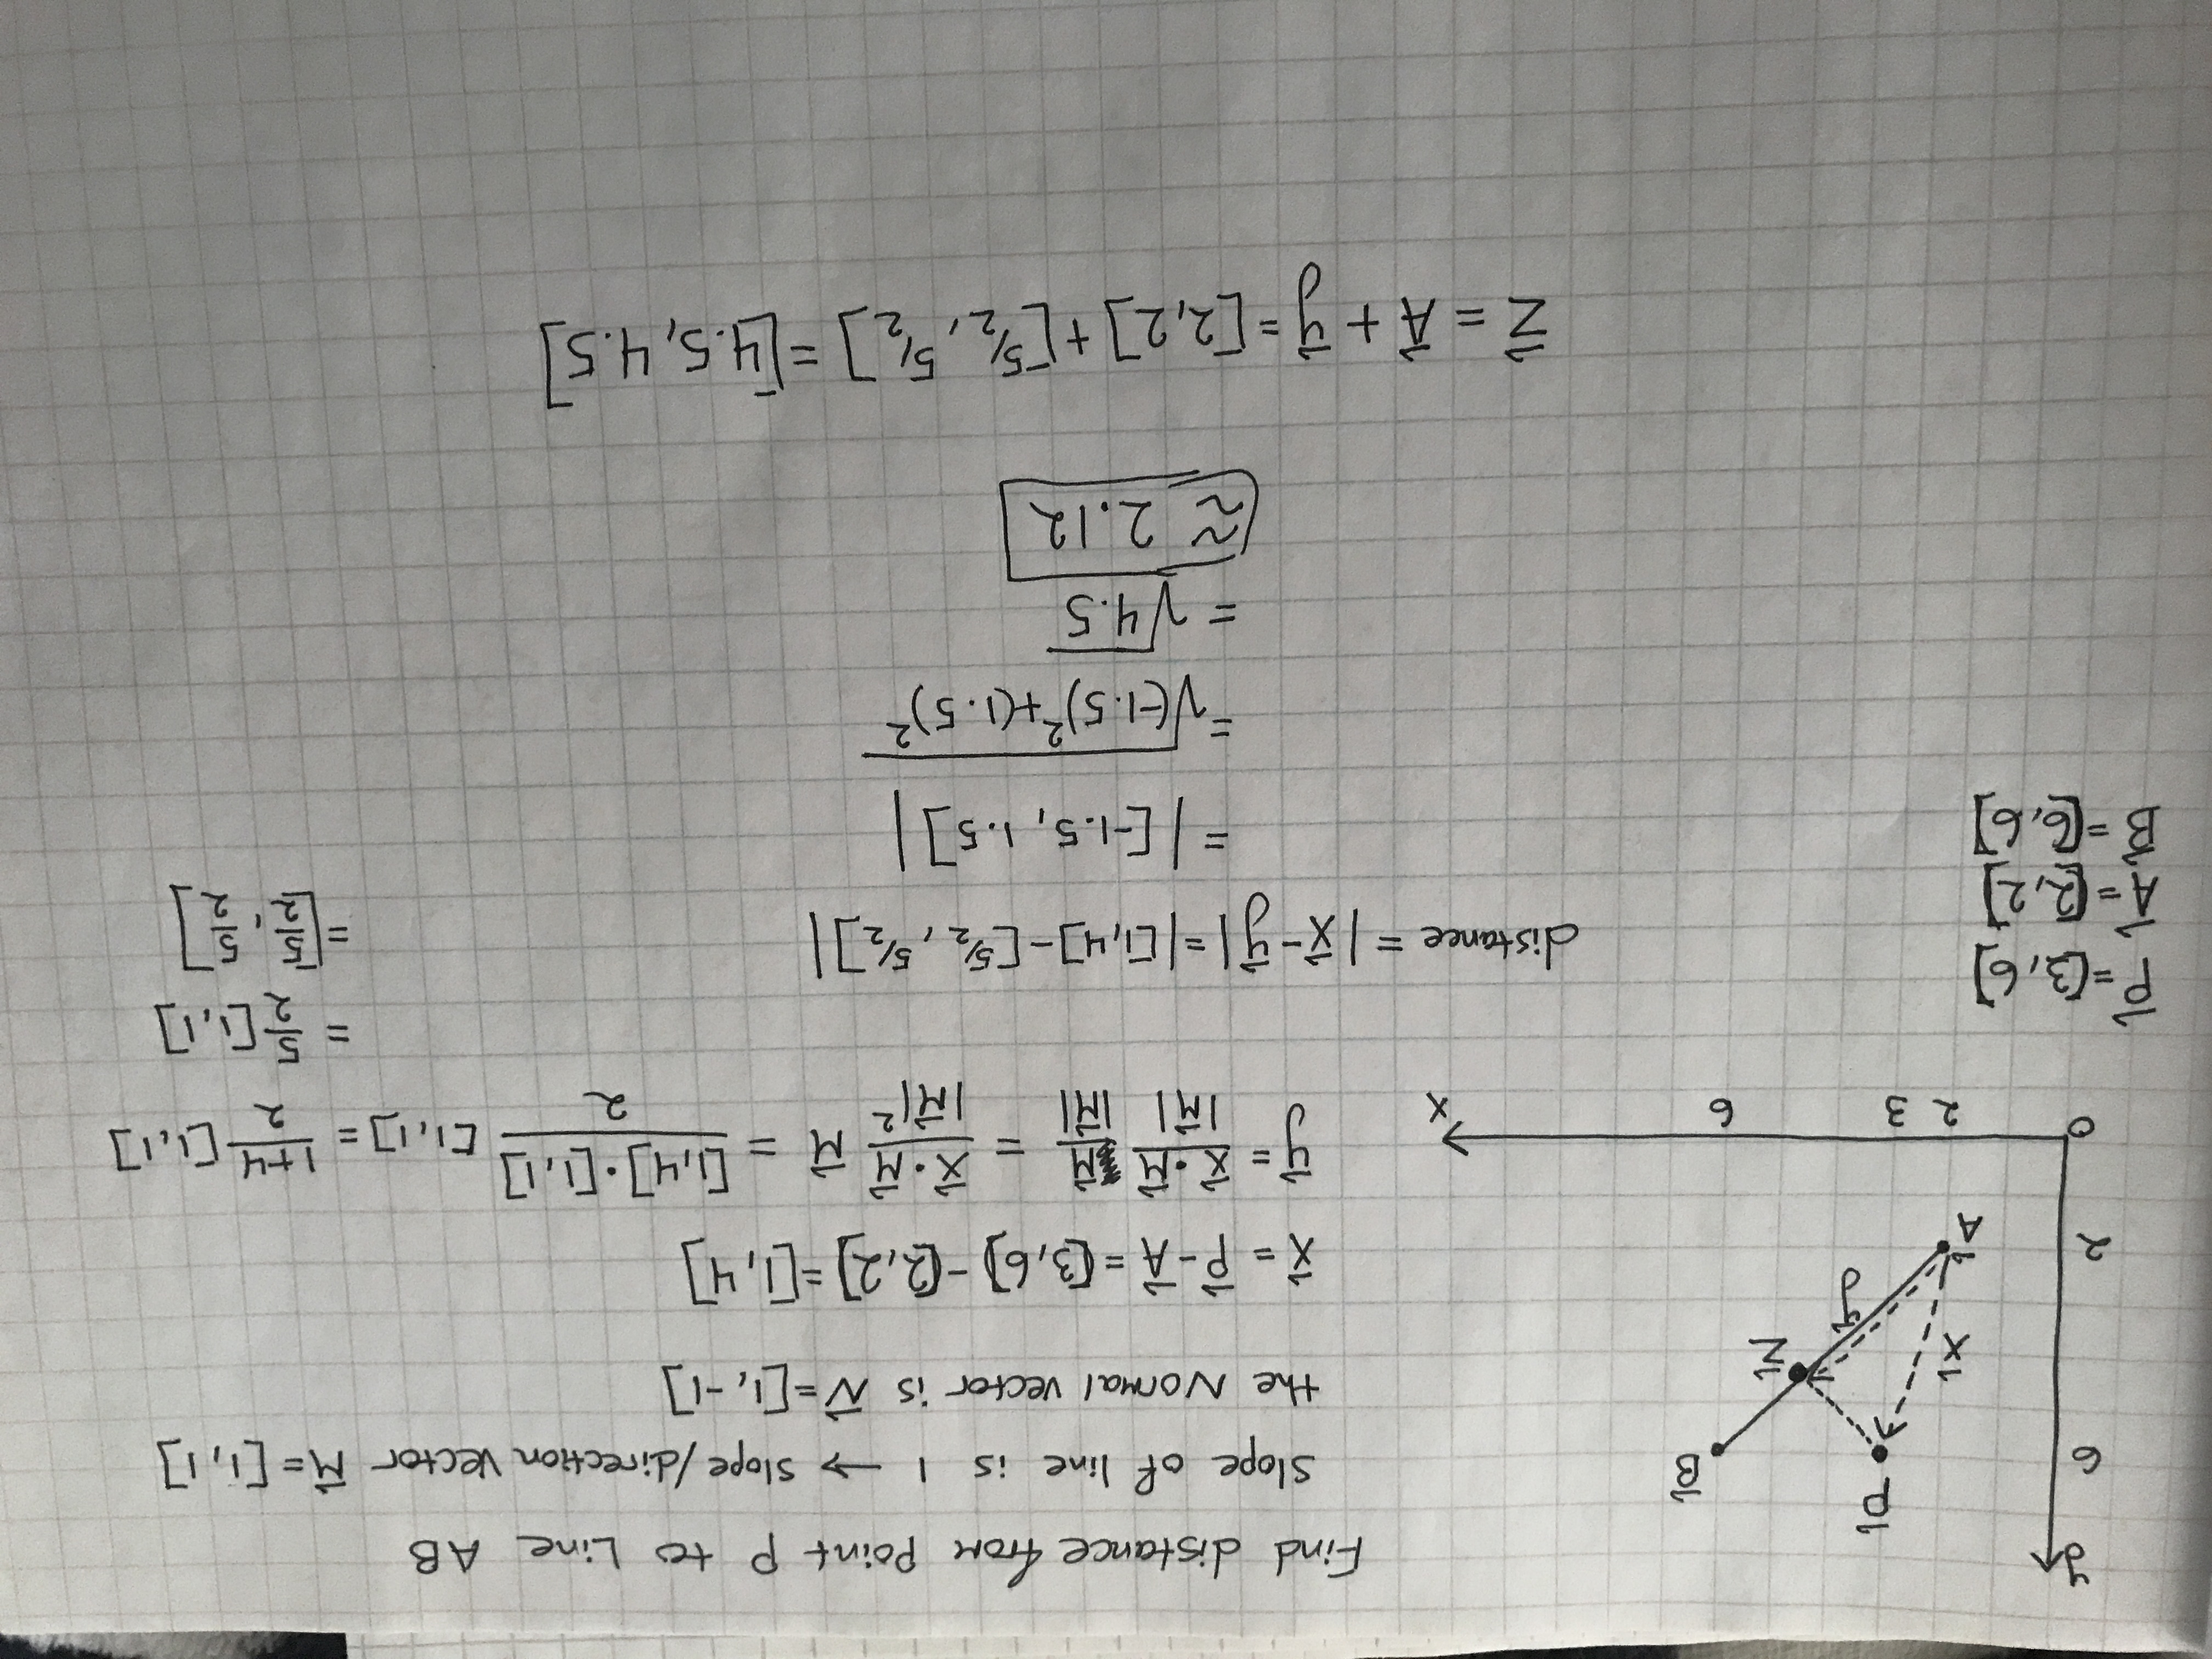 y
P⃗
B⃗
6
x⃗
Z⃗
y⃗
2
A⃗
0
2 3 6
x
P⃗ = [3, 6]
A⃗ = [2, 2]
B⃗ = [6, 6]
Find distance from point P to Line AB
Slope of line is 1 → slope/direction vector M⃗ = [1, 1]
the Normal vector is N⃗ = [1, -1]
x⃗ = P⃗ - A⃗ = [3, 6] - [2, 2] = [1, 4]
y⃗ = (x⃗ · M⃗)/|M⃗| M⃗/|M⃗| = (x⃗ · M⃗)/|M⃗|² M⃗ = ([1,4] · [1,1])/2 [1,1] = (1+4)/2 [1,1]
= 5/2 [1,1]
= [5/2, 5/2]
distance = |x⃗ - y⃗| = |[1,4] - [5/2, 5/2]|
= |[-1.5, 1.5]|
= √((-1.5)² + (1.5)²)
= √4.5
≈ 2.12
Z⃗ = A⃗ + y⃗ = [2,2] + [5/2, 5/2] = [4.5, 4.5]